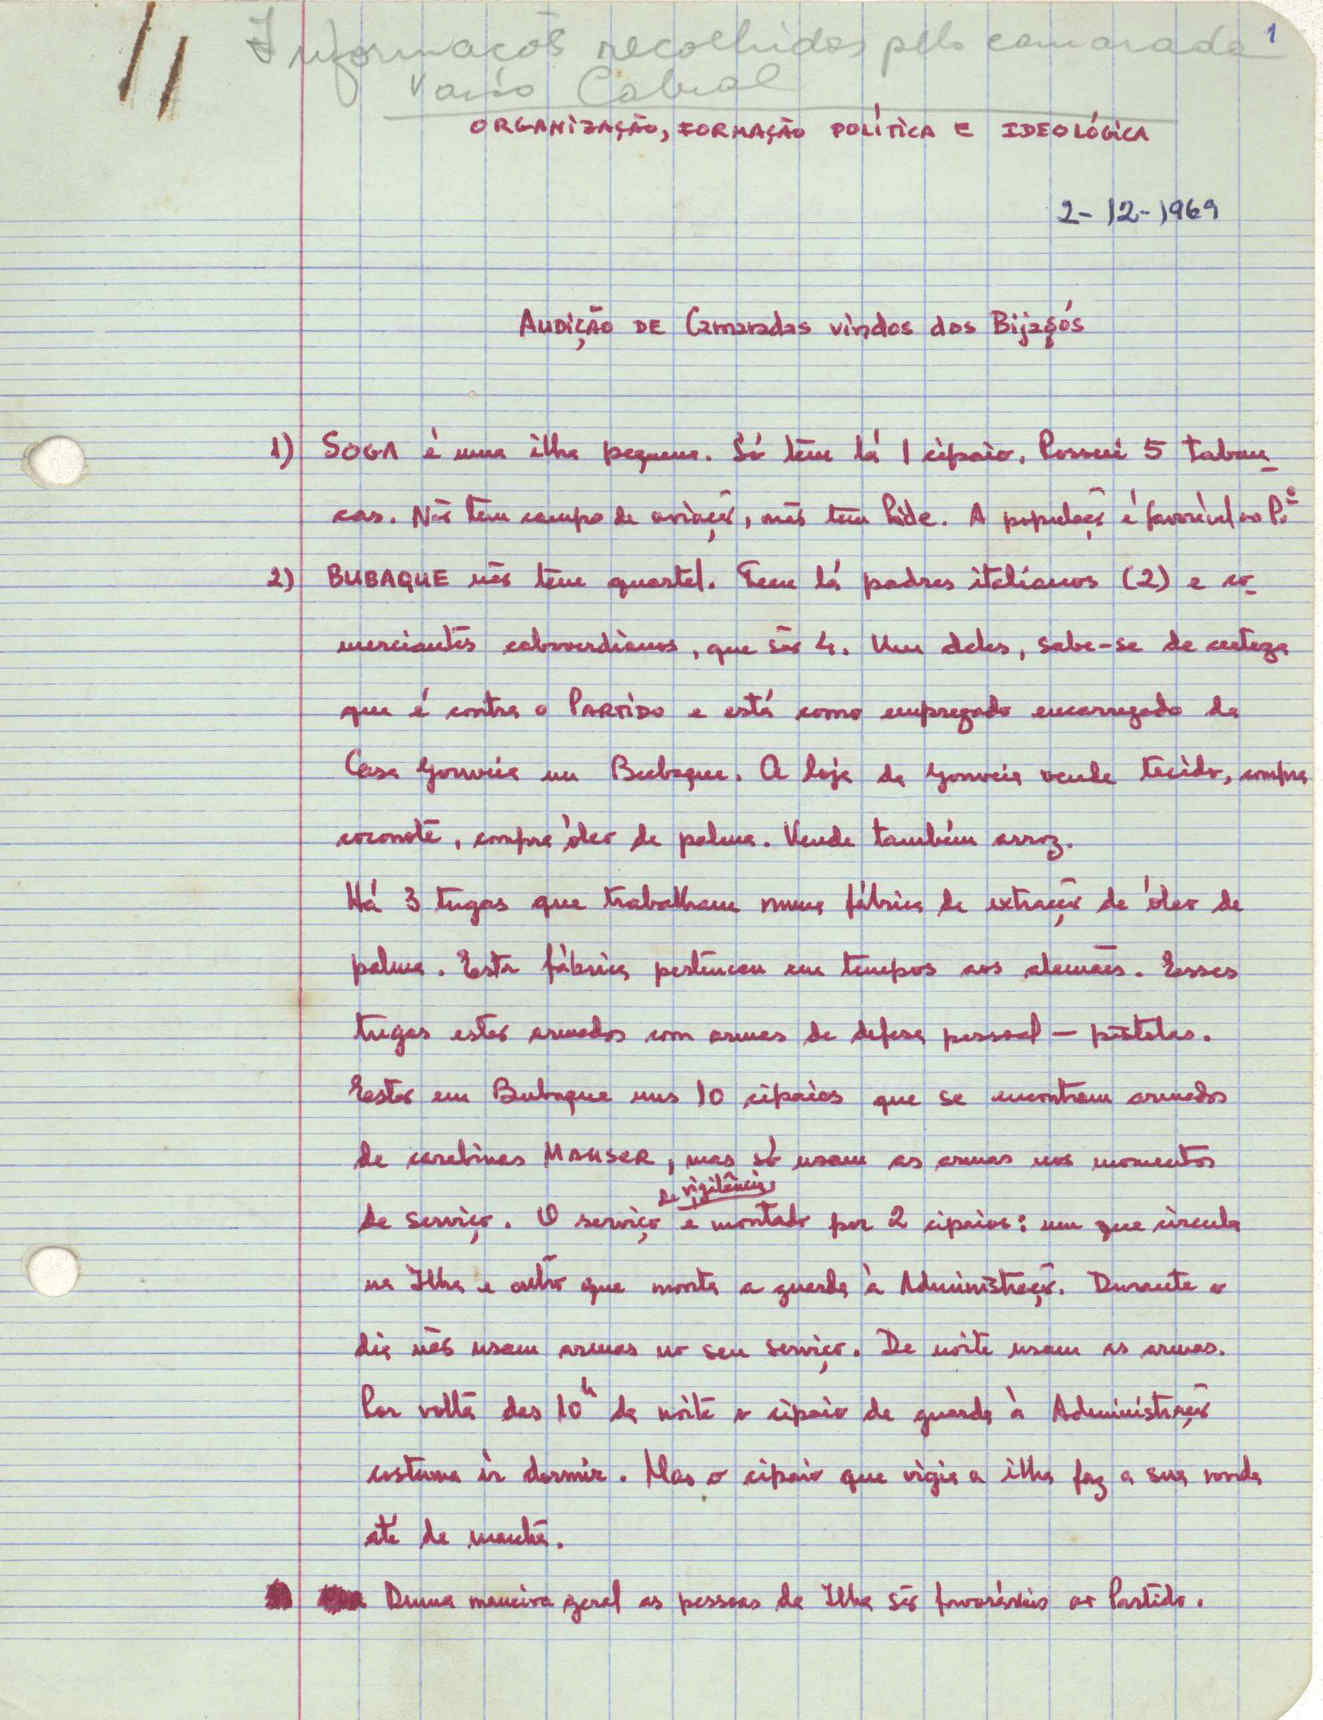 1
Informações recolhidas pelo camarada
Vasco Cabral
ORGANIZAÇÃO, FORMAÇÃO POLÍTICA E IDEOLÓGICA
2-12-1969
AUDIÇÃO DE Camaradas vindos dos Bijagós
1) SOGA é uma ilha pequena. Só tem lá 1 cipaio. Possui 5 taban-
cas. Não tem campo de aviação, não tem Pide. A população é favorável ao P.º
2) BUBAQUE não tem quartel. Tem lá padres italianos (2) e co-
merciantes caboverdianos, que são 4. Um deles, sabe-se de certeza
que é contra o PARTIDO e está como empregado encarregado da
Casa Gouveia em Bubaque. A loja da Gouveia vende tecido, compra
coconote, compra óleo de palma. Vende também arroz.
Há 3 tugas que trabalham numa fábrica de extracção de óleo de
palma. Esta fábrica pertenceu em tempos aos alemães. Esses
tugas estão armados com armas de defesa pessoal — pistolas.
Estão em Bubaque uns 10 cipaios que se encontram armados
de carabinas MAUSER, mas só usam as armas nos momentos
de serviço. O serviço de vigilância é montado por 2 cipaios: um que circula
na Ilha e outro que monta a guarda à Administração. Durante o
dia não usam armas no seu serviço. De noite usam as armas.
Por volta das 10h da noite o cipaio de guarda à Administração
costuma ir dormir. Mas o cipaio que vigia a ilha faz a sua ronda
até de manhã.
Duma maneira geral as pessoas da Ilha são favoráveis ao Partido.